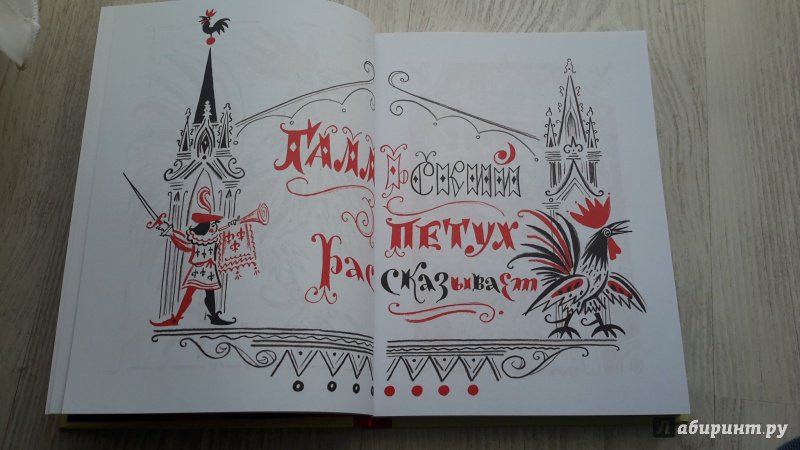 Галльский
петух
рассказывает
Лабиринт.ру